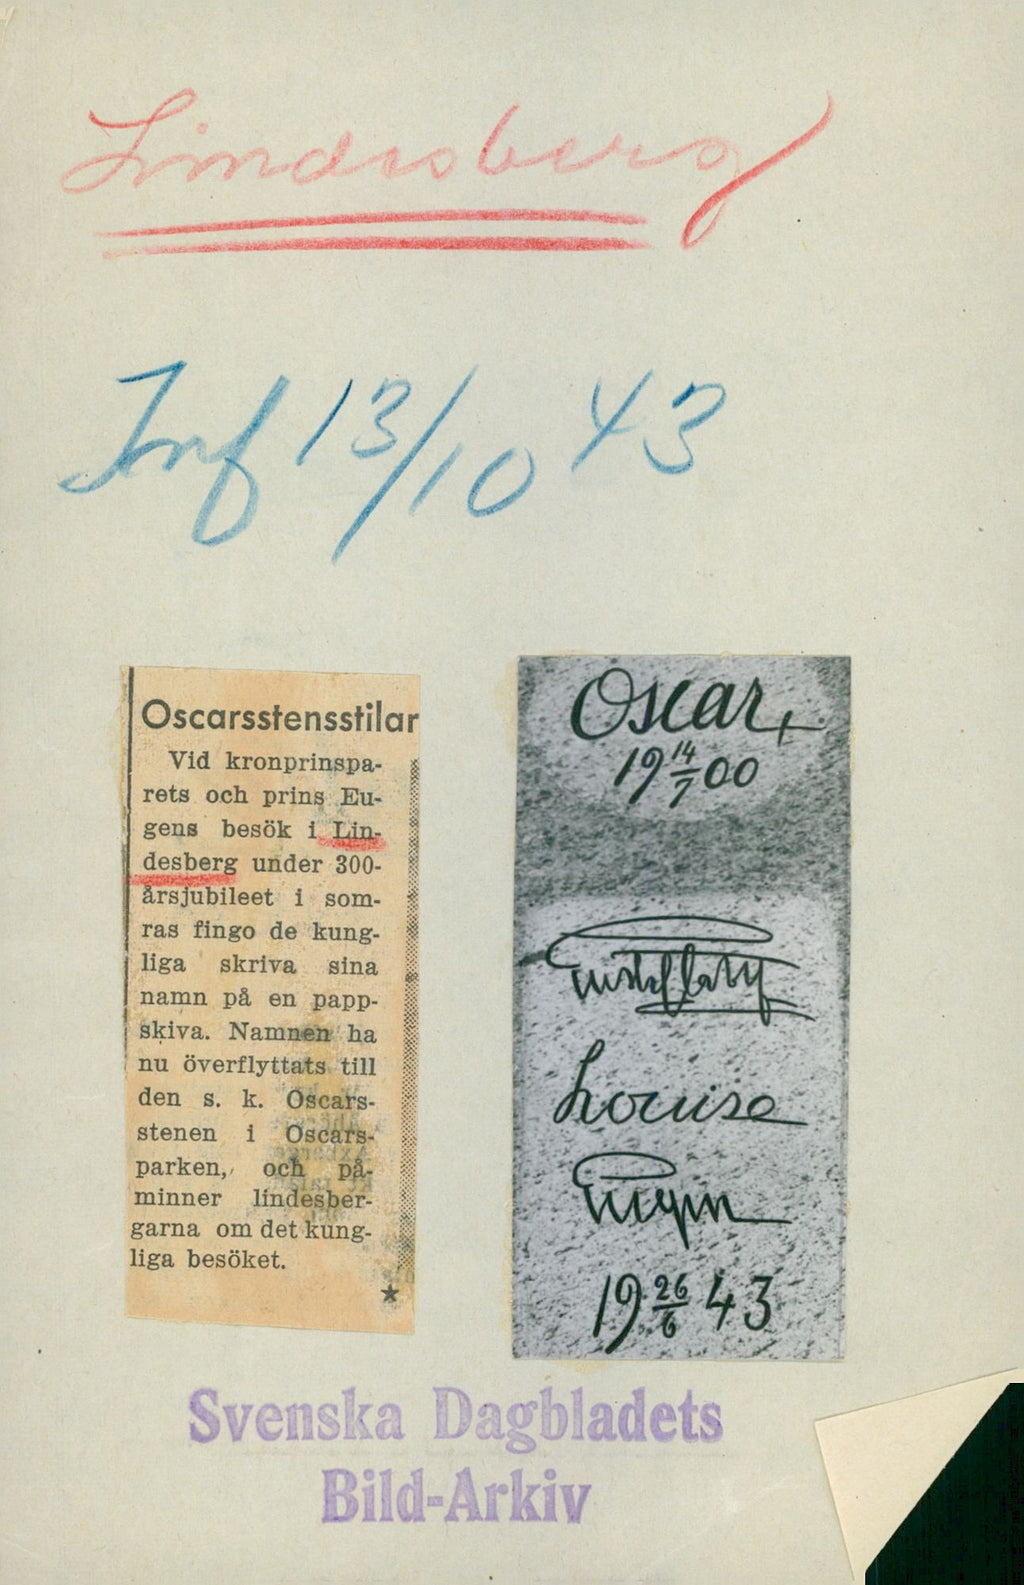 Lindesberg
Inf 13/10 43
Oscarsstensstilar
Vid kronprinspa-
rets och prins Eu-
gens besök i Lin-
desberg under 300-
årsjubileet i som-
ras fingo de kung-
liga skriva sina
namn på en papp-
skiva. Namnen ha
nu överflyttats till
den s. k. Oscars-
stenen i Oscars-
parken, och på-
minner lindesber-
garna om det kung-
liga besöket.
★
Oscar
19 14/7 00
Gustaf Adolf
Louise
Eugen
19 26/6 43
Svenska Dagbladets
Bild-Arkiv